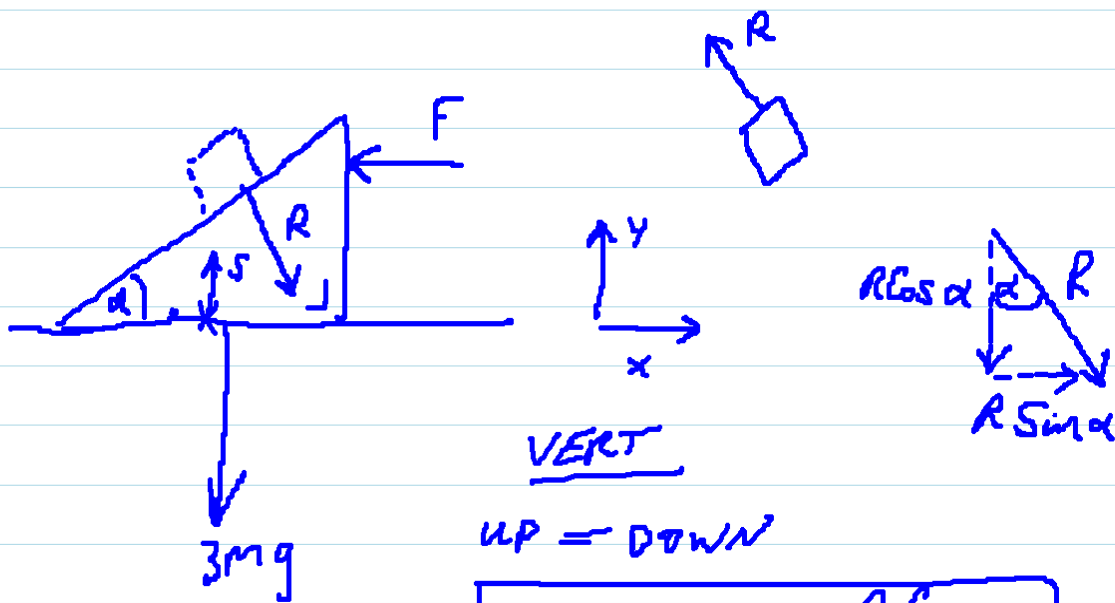 R
F
R
S
α
y
x
RCos α
α
R
R Sin α
VERT
UP = DOWN
3mg